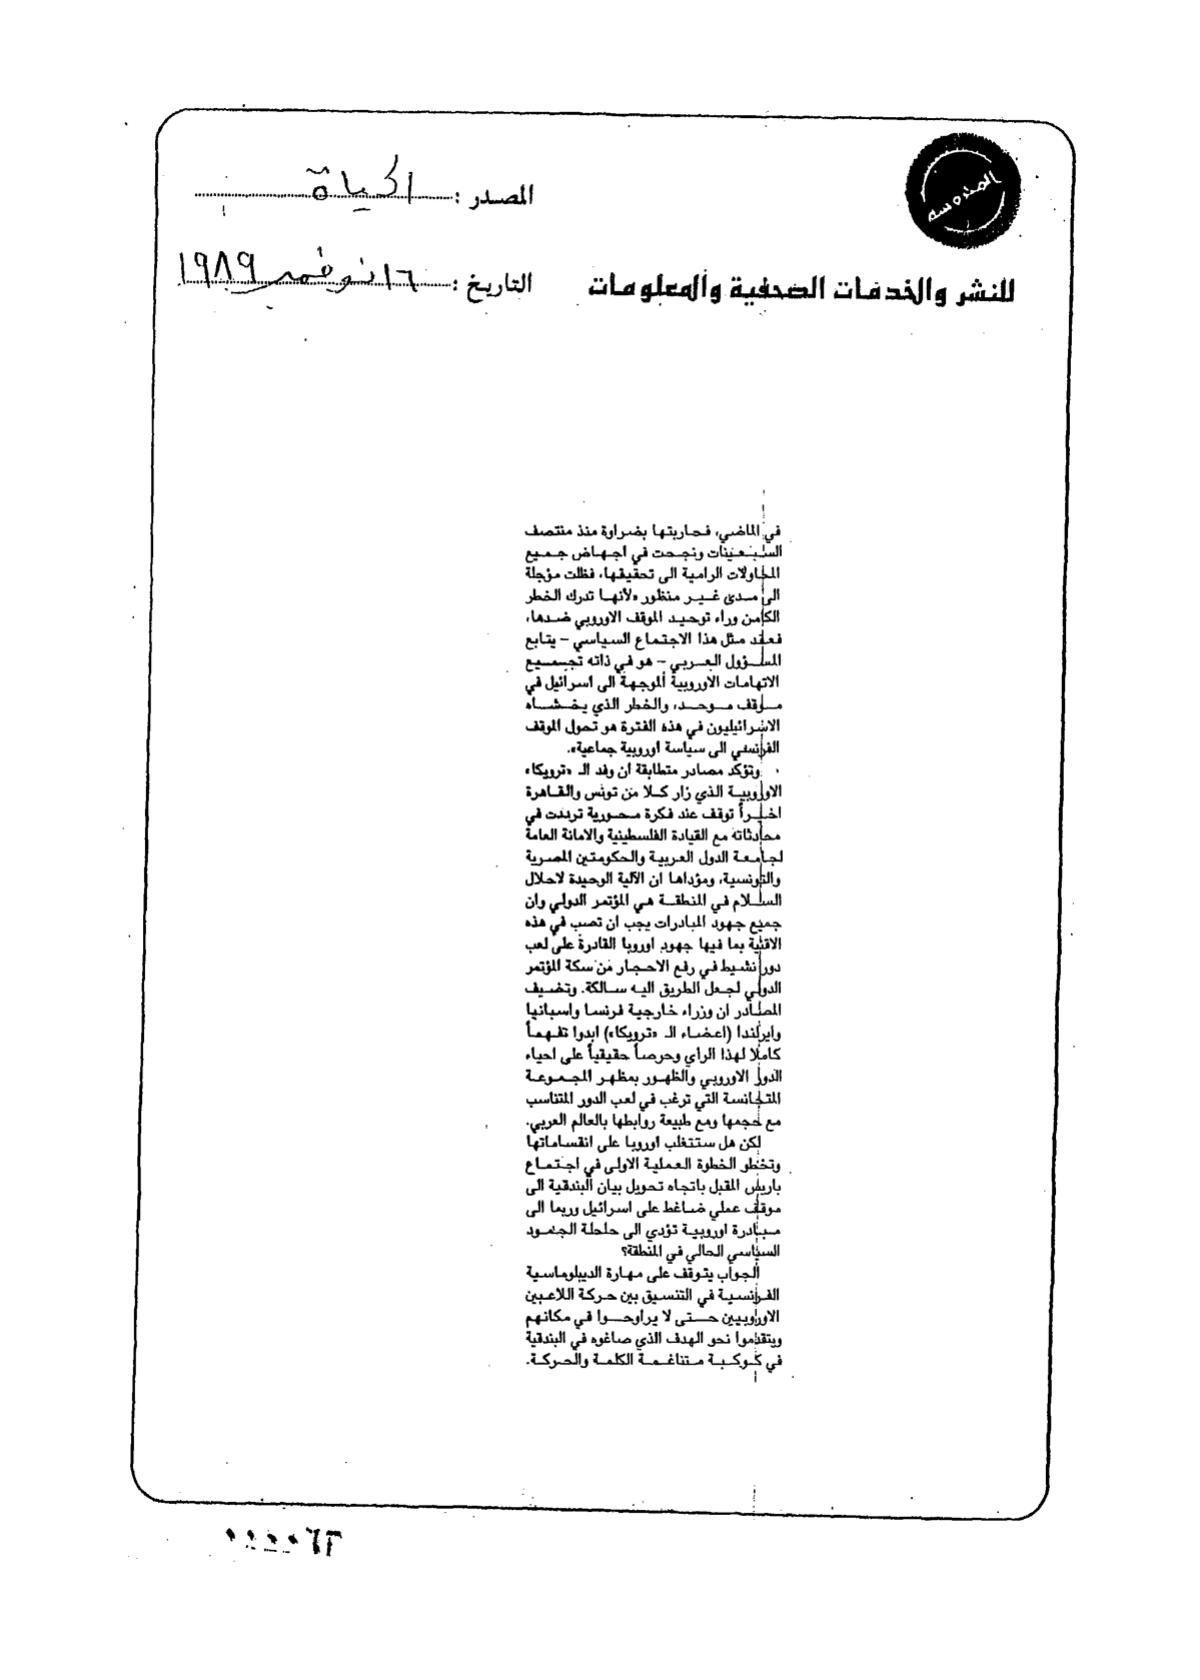 المصدر : الحياة
التاريخ : ١٦ نوفمبر ١٩٨٩
للنشر والخدمات الصحفية والمعلومات
في الماضي، فحاربتها بضراوة منذ منتصف
السبعينات ونجحت في اجهاض جميع
المحاولات الرامية الى تحقيقها، فظلت مؤجلة
الى مدى غير منظور «لأنها تدرك الخطر
الكامن وراء توحيد الموقف الاوروبي ضدها،
فعقد مثل هذا الاجتماع السياسي - يتابع
المسؤول العربي - هو في ذاته تجميع
الاتهامات الاوروبية الموجهة الى اسرائيل في
موقف موحد، والخطر الذي يخشاه
الاسرائيليون في هذه الفترة هو تحول الموقف
الفرنسي الى سياسة اوروبية جماعية».
وتؤكد مصادر متطابقة ان وفد الـ «ترويكا»
الاوروبية الذي زار كلا من تونس والقاهرة
اخيراً توقف عند فكرة محورية ترددت في
محادثاته مع القيادة الفلسطينية والامانة العامة
لجامعة الدول العربية والحكومتين المصرية
والتونسية، ومؤداها ان الآلية الوحيدة لاحلال
السلام في المنطقة هي المؤتمر الدولي وان
جميع جهود المبادرات يجب ان تصب في هذه
الاقنية بما فيها جهود اوروبا القادرة على لعب
دور نشيط في رفع الاحجار من سكة المؤتمر
الدولي لجعل الطريق اليه سالكة. وتضيف
المصادر ان وزراء خارجية فرنسا واسبانيا
وايرلندا (اعضاء الـ «ترويكا») ابدوا تفهماً
كاملا لهذا الرأي وحرصاً حقيقياً على احياء
الدور الاوروبي والظهور بمظهر المجموعة
المتجانسة التي ترغب في لعب الدور المتناسب
مع حجمها ومع طبيعة روابطها بالعالم العربي.
لكن هل ستتغلب اوروبا على انقساماتها
وتخطو الخطوة العملية الاولى في اجتماع
باريس المقبل باتجاه تحويل بيان البندقية الى
موقف عملي ضاغط على اسرائيل وربما الى
مبادرة اوروبية تؤدي الى حلحلة الجمود
السياسي الحالي في المنطقة؟
الجواب يتوقف على مهارة الديبلوماسية
الفرنسية في التنسيق بين حركة اللاعبين
الاوروبيين حتى لا يراوحوا في مكانهم
ويتقدموا نحو الهدف الذي صاغوه في البندقية
في كوكبة متناغمة الكلمة والحركة.